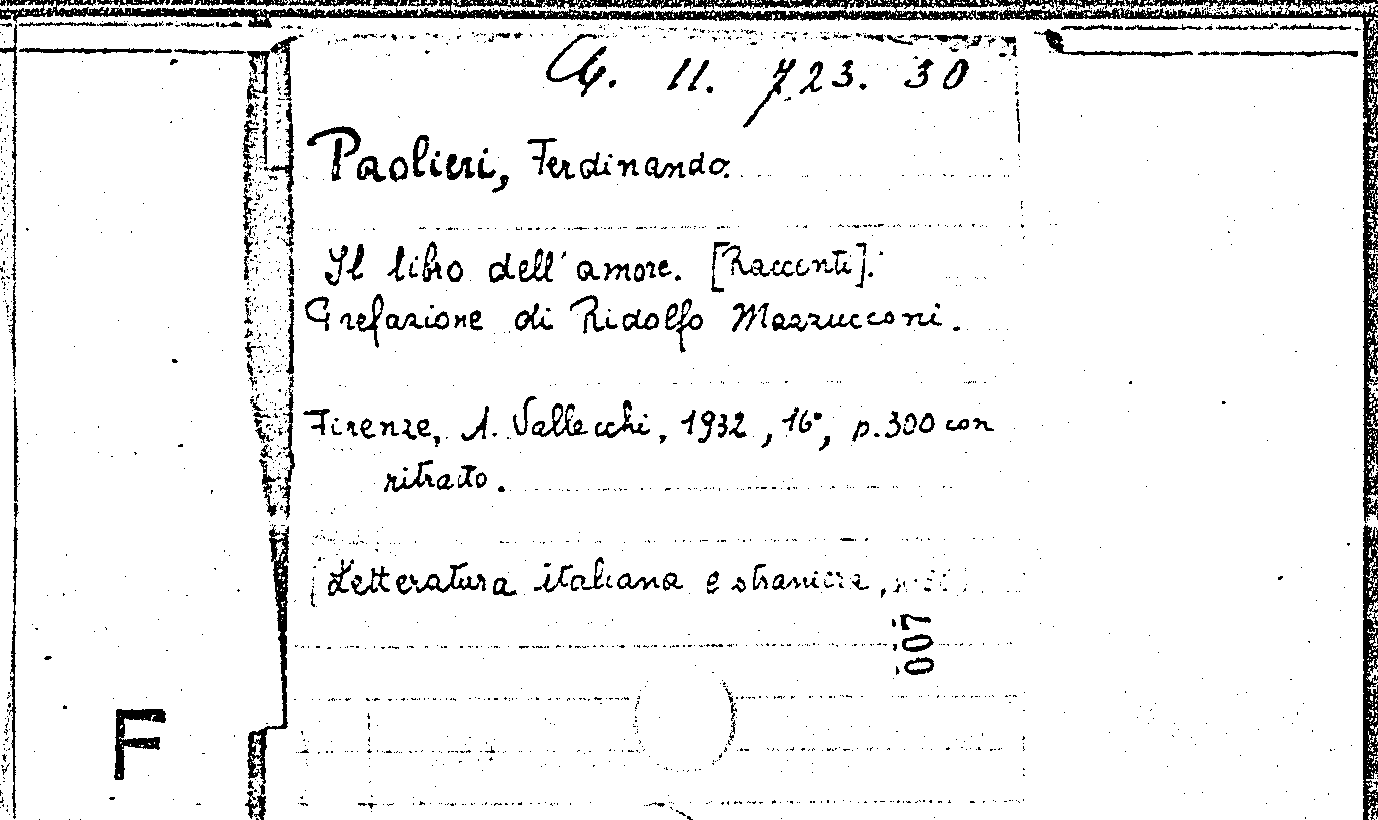 G. 11. 723. 30
Paolieri, Ferdinando.
Il libro dell'amore. [Racconti].
Prefazione di Ridolfo Mazzucconi.
Firenze, A. Vallecchi, 1932, 16°, p. 300 con
ritratto.
(Letteratura italiana e straniera,
007
F